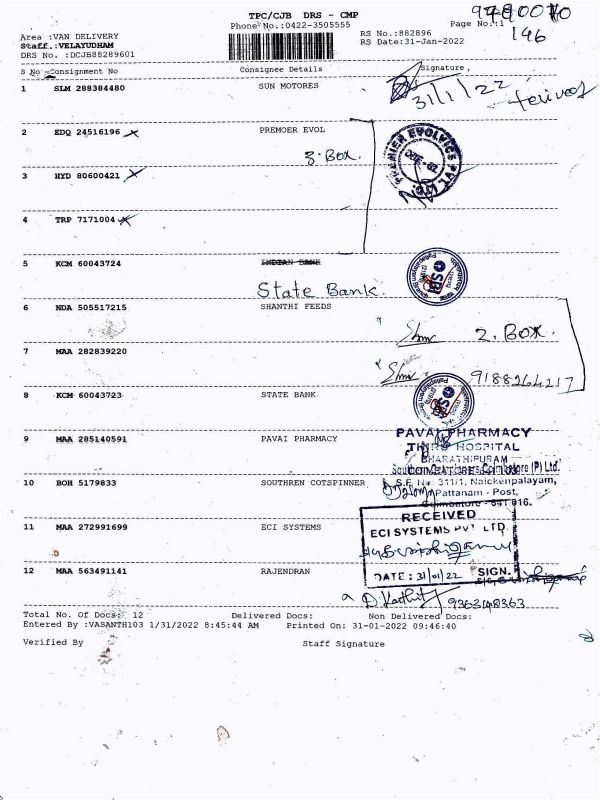 TPC/CJB DRS - CMP
Phone No.:0422-3505555
Page No.:1
146
Area :VAN DELIVERY
Staff.:VELAYUDHAM
DRS No. :DCJB88289601
RS No.:882896
RS Date:31-Jan-2022
S No Consignment No Consignee Details Signature
1 SLM 288384480 SUN MOTORES
31/1/22
2 EDQ 24516196 PREMOER EVOL
3 Box.
PREMIER EVOLVICS PVT. LTD.
3 HYD 80600421
4 TRP 7171004
5 KCM 60043724 INDIAN BANK
State Bank.
SBI
6 NDA 505517215 SHANTHI FEEDS
2. Box.
7 MAA 282839220
9188264217
8 KCM 60043723 STATE BANK
SBI
9 MAA 285140591 PAVAI PHARMACY
PAVAI PHARMACY
HOSPITAL
BHARATHIPURAM
10 BOH 5179833 SOUTHREN COTSPINNER
(P) Ltd.
S.F. No. 311/1, Naickenpalayam,
Pattanam - Post,
Coimbatore - 641 016.
11 MAA 272991699 ECI SYSTEMS
RECEIVED
ECI SYSTEMS PVT LTD.
DATE : 31/01/22 SIGN.
12 MAA 563491141 RAJENDRAN
9363148363
Total No. Of Docs: 12 Delivered Docs: Non Delivered Docs:
Entered By :VASANTH103 1/31/2022 8:45:44 AM Printed On: 31-01-2022 09:46:40
Verified By Staff Signature